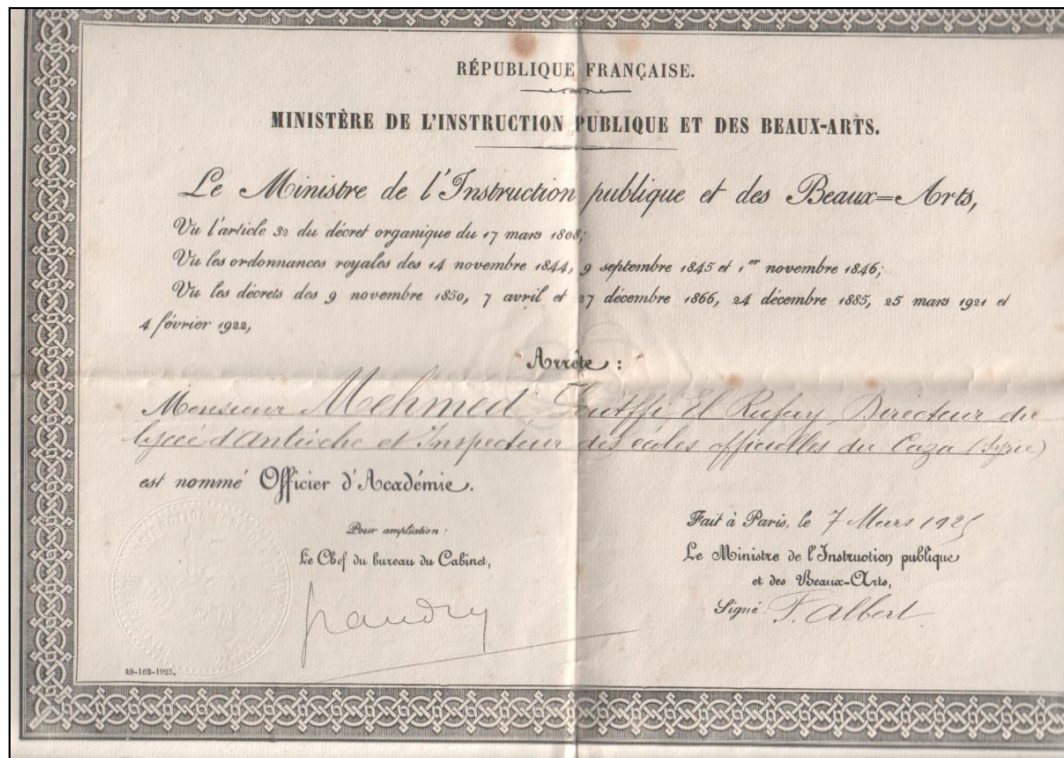 RÉPUBLIQUE FRANÇAISE.
MINISTÈRE DE L'INSTRUCTION PUBLIQUE ET DES BEAUX-ARTS.
Le Ministre de l'Instruction publique et des Beaux=Arts,
Vu l'article 32 du décret organique du 17 mars 1808;
Vu les ordonnances royales des 14 novembre 1844, 9 septembre 1845 et 1er novembre 1846;
Vu les décrets des 9 novembre 1850, 7 avril et 27 décembre 1866, 24 décembre 1885, 25 mars 1921 et
4 février 1922,
Arrête :
Monsieur Mehmed El Rufay Directeur du
lycée d'Antioche et Inspecteur des écoles officielles du Caza (Syrie)
est nommé Officier d'Académie.
Pour ampliation :
Le Chef du bureau du Cabinet,
Fait à Paris, le 7 Mars 1925
Le Ministre de l'Instruction publique
et des Beaux-Arts,
Signé : F. Albert